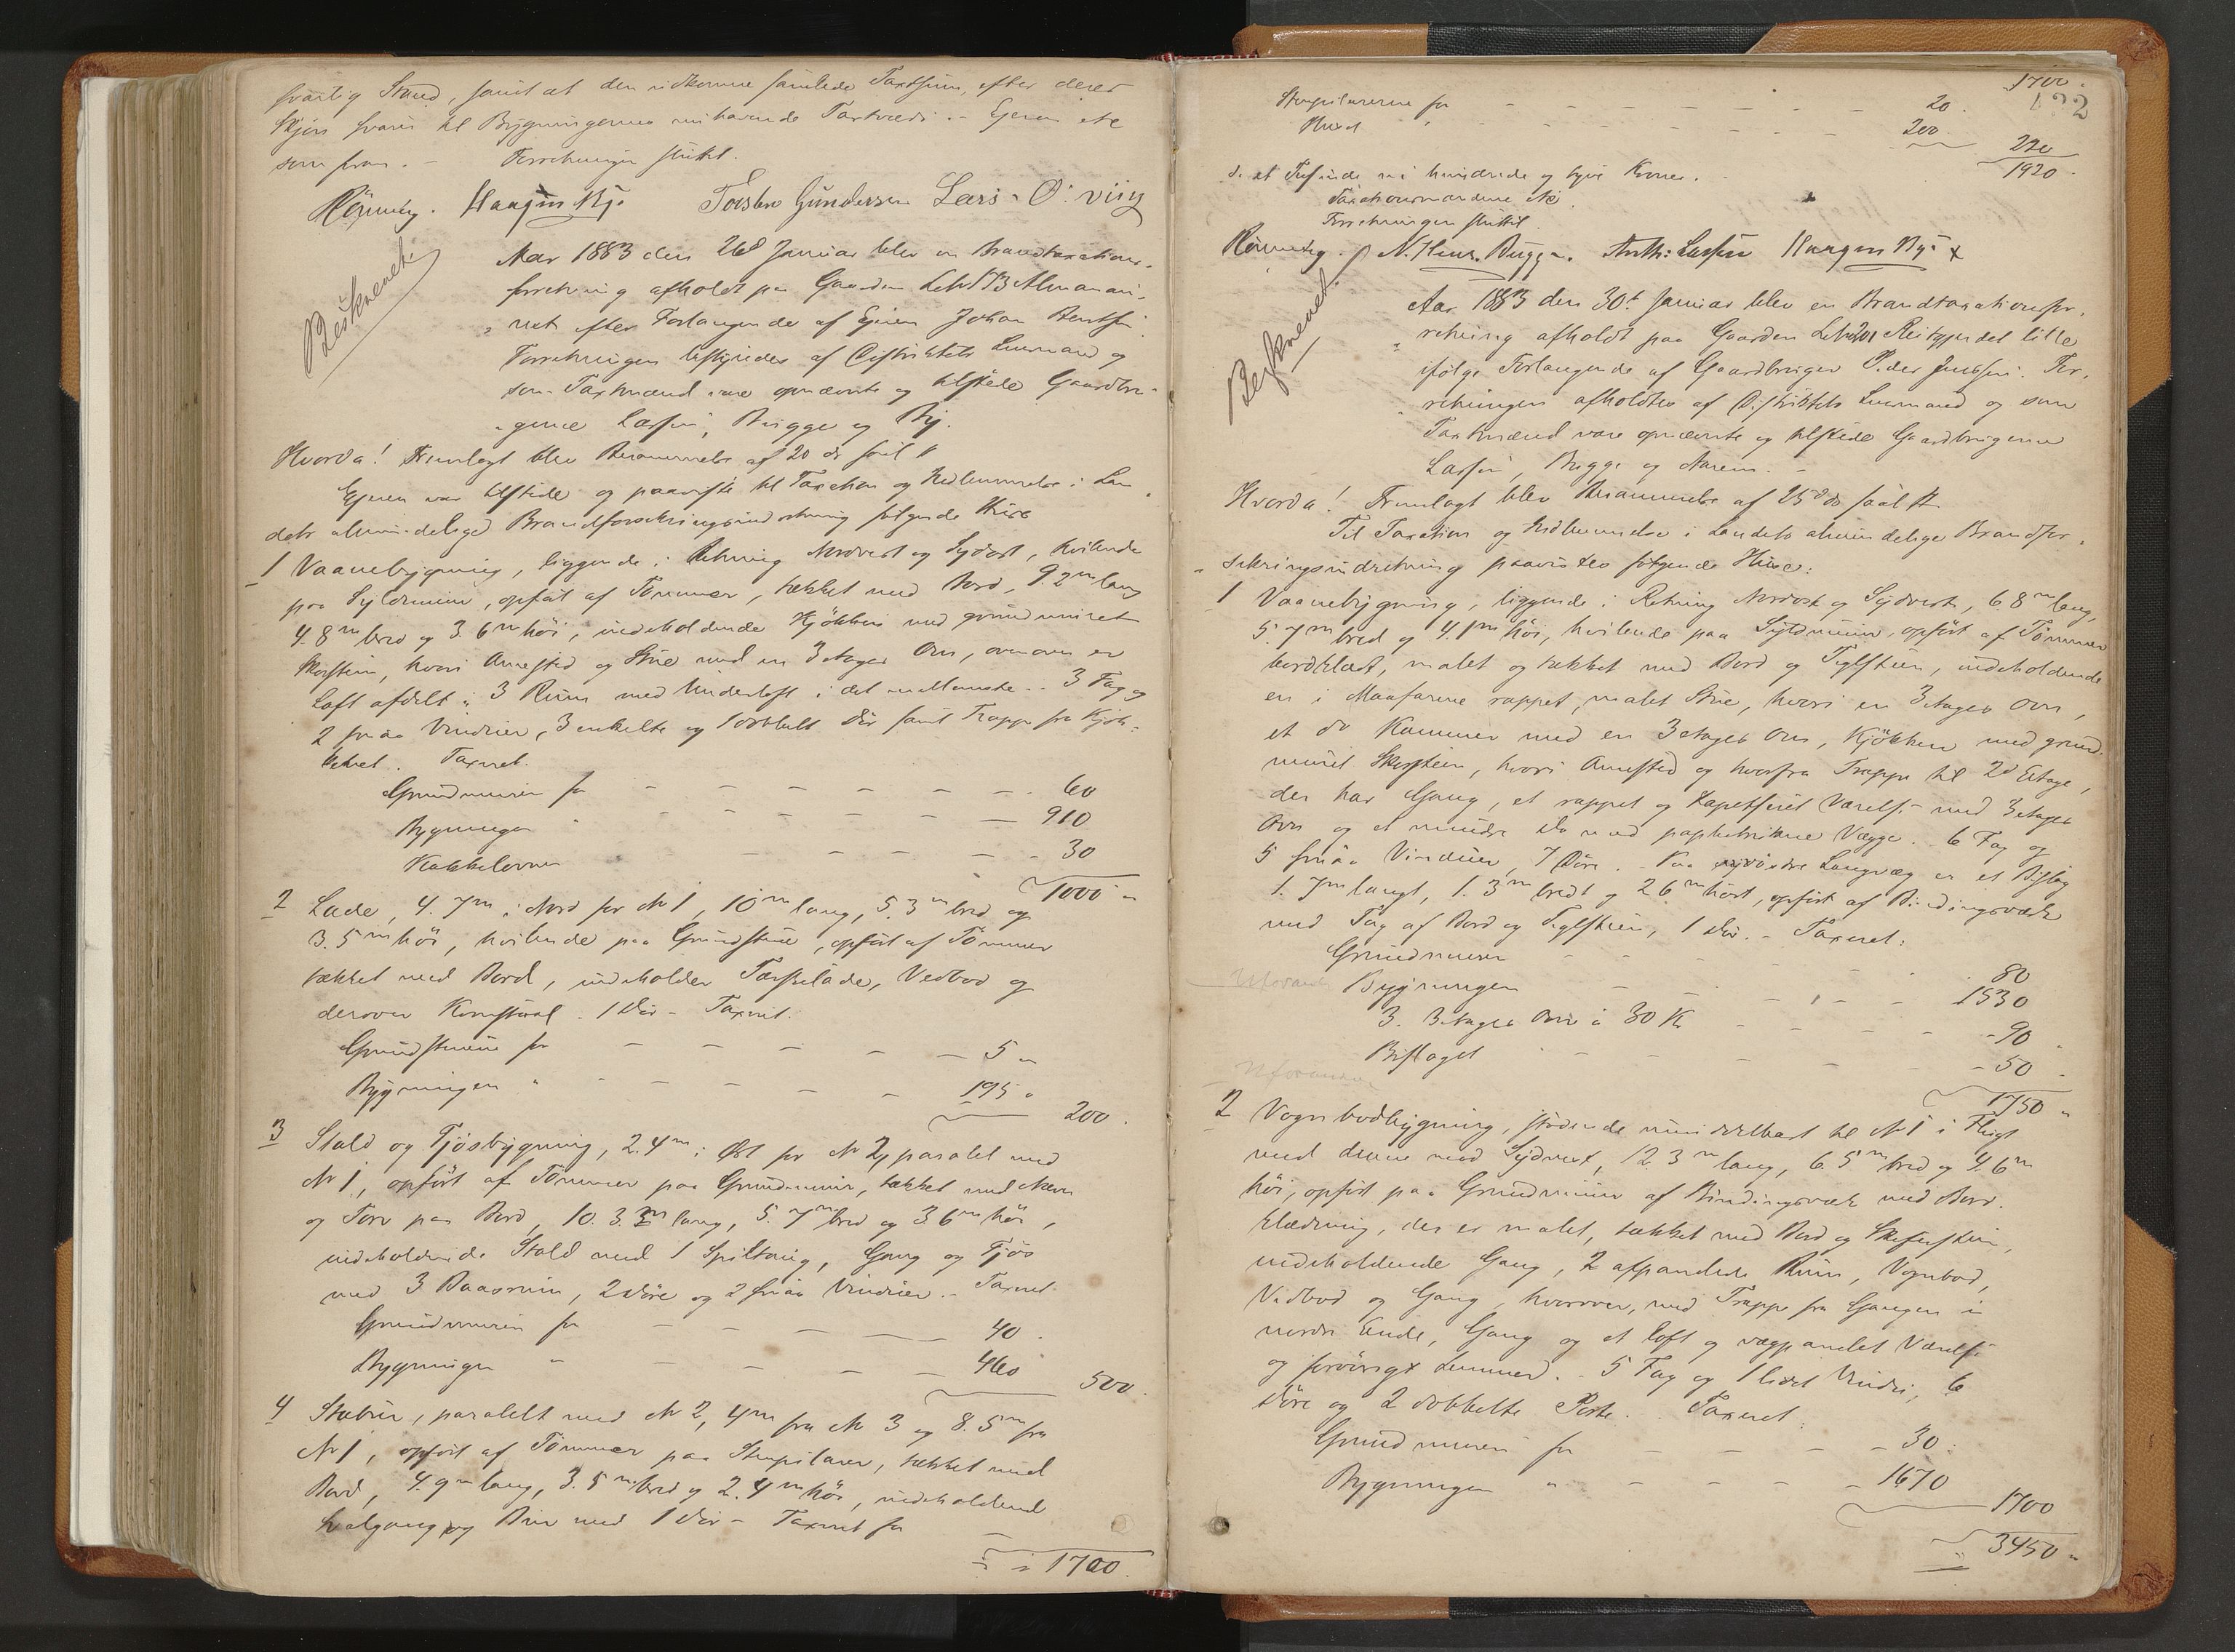 Stand, samt at den udkomne samlede Taxtsum, efter deres
Skjøn svarer til Bygningernes nuhavende Taxtværdi. – Eieren etc
som frem. – Forretningen sluttet.
Rønning. Haagen By. Torsten Gundersen Lars O. 
Beskrevet.
Aar 1883 den 26d Januar blev en Brandtaxations-
forretning afholdt paa Gaarden 
efter Forlangende af Eieren Johan Berntsen
Forretningen bestyredes af Distriktets Lensmand og
som Taxtmænd vare opnævnte og tilstede Gaardbru-
gerne Larsen, Brygge og By.
Hvorda! Fremlagt blev Berammelse af 20 ds saal #
Eieren var tilstede og paaviste til Taxation og Indlemmelse i Lan-
dets almindelige Brandforsikringsindretning følgende Huse
1 Vaanebygning, liggende i Retning Nordvest og Sydøst, hvilende
paa Syldmuur, opført af Tømmer, tækket med Bord, 9.2m lang
4.8m bred og 3.6m høi, indeholdende Kjøkken med grundmuret
Skorsten, hvori Arnested og Stue med en 3 etages Ovn, ovenover er
Loft afdelt i 3 Rum med Underloft i det mellemste. 3 Fag og
2 smaa Vinduer, 3 enkelte og 1 dobbelt Dør samt Trappe fra Kjøk-
kenet. Taxeret.
Grundmuren for – – – – – – 60
Bygningen " – – – – – – 910
Kakkelovnen – – – – 30
1000 "
2 Lade, 4.7m i Nord for No 1, 10m lang, 5.3m bred og
3.5m høi, hvilende paa Grundstene, opført af Tømmer
tækket med Bord, indeholder Tærskelade, Vedbod og
derover Kornstaal. 1 Dør – Taxeret.
Grundstenene for – – – – – 5 "
Bygningen " – – – – – 195 "
200.
3 Stald og Fjøsbygning, 2.4m i Øst for No 2, paralel med
No 1, opført af Tømmer paa Grundmuur, tækket med Næver
og Torv paa Bord, 10.3m lang, 5.7m bred og 3.6m høi,
indeholdende Stald med 1 Spiltoug, Gang og Fjøs
med 3 Baasrum, 2 Døre og 2 smaa Vinduer. – Taxeret
Grundmuren for – – – – – 40.
Bygningen " – – – – 460
500.
4 Stabur, paralelt med No 2, 4m fra No 3 og 8.5m fra
No 1, opført af Tømmer paa Stenpilarer, tækket med
Bord, 4.9m lang, 3.5m bred og 2.4m høi, indeholdende
Svalgang og Bur med 1 Dør – Taxeret for
1700.
1700.
132
Stenpilarerne for – – – – – – 20.
Huset " – – – – – – 200
220
1920.
d. e. et Tusinde ni hundrede og tyve Kroner.
Taxationsmændene etc.
Forretningen sluttet.
Rønning. N. Hans. Brygge. Anth: Larsen Haagen By
Beskrevet.
Aar 1883 den 30te Januar blev en Brandtaxationsfor-
retning afholdt paa Gaarden Reitgjerdet lille
ifølge Forlangende af Gaardbruger Peder Jenssen. For-
retningen afholdtes af Distriktets Lensmand og som
Taxtmænd vare opnævnte og tilstede Gaardbrugerne
Larsen, Brygge og Aarem. –
Hvorda! Fremlagt blev Berammelse af 25de ds saal #
Til Taxation og Indlemmelse i Landets almindelige Brandfor-
sikringsindretning paavistes følgende Huse:
1 Vaanebygning, liggende i Retning Nordost og Sydvest, 6.8m lang,
5.7m bred og 4.1m høi, hvilende paa Syldmuur, opført af Tømmer
bordklædt, malet og tækket med Bord og Teglsten, indeholdende
en i Maafarve rappet, malet Stue, hvori en 3 etages Ovn,
et do Kammer med en 3 etages Ovn, Kjøkken med grund-
muret Skorsten, hvori Arnested og hvorfra Trappe til 2d Etage,
der har Gang, et rappet og tapetseret Værelse med 3 etages
Ovn og et mindre do med papbetrukne Vægge. 6 Fag og
5 smaa Vinduer, 7 Døre. – Paa søndre Langvæg er et Bislag
1.7m langt, 1.3m bredt og 2.6m høit, opført af Bindingsværk
med Tag af Bord og Teglsten, 1 Dør. – Taxeret:
Grundmuren – – – – 80
Uforandr Bygningen – – – – – 1530
3. 3 etages Ovne à 30 Kr – – – – 90
Bislaget – – – – 50
Uforandr
1750 "
2 Vognbodbygning, stødende umiddelbart til No 1 i Flugt
med denne mod Sydvest, 12.3m lang, 6.5m bred og 4.6m
høi, opført paa Grundmuur af Bindingsværk med Bord-
klædning, der er malet, tækket med Bord og Skifersten,
indeholdende Gang, 2 afpanelede Rum, Vognbod,
Vedbod og Gang, hvorover, med Trappe fra Gangen i
nordre Ende, Gang og et loft og vægpanelet Værelse
og forøvrigt Lemmer. – 5 Fag og 1 lidet Vindu, 6
Døre og 2 dobbelte Porte. – Taxeret:
Grundmuren for – – – – 30.
Bygningen " – – – – 1670
1700
3450 "